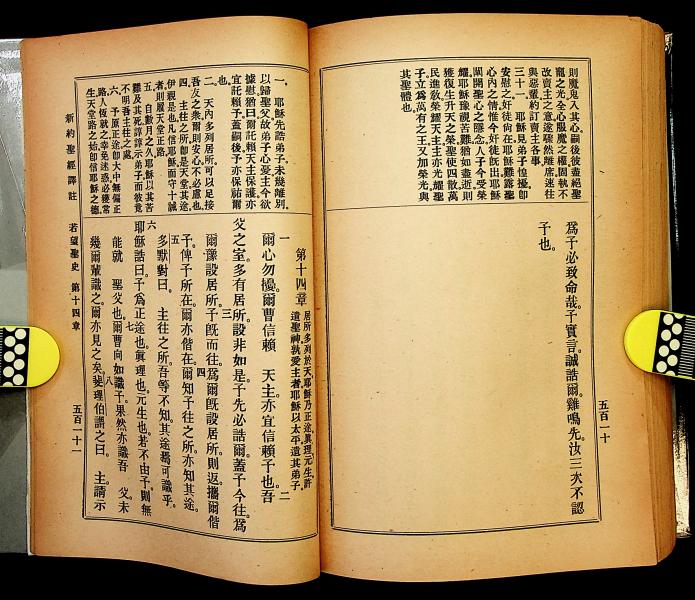 則魔鬼入其心嗣後彼盡絕聖
寵之光全心服魔之權固執不
改賣主之意途驟然離席速往
與惡輩約訂賣主各事
三十一、耶穌見弟子惶擾卽
安慰之奸徒尙在耶穌難露聖
心內之情惟今奸徒旣出耶穌
闢開聖心之隱念人子今受榮
耀耶穌豫視苦難猶如盡逝則
獲復生升天之榮聖使四散萬
民進敎榮耀天主天主亦光耀
子立爲萬有之王又加榮光與
其聖體也
爲予必致命哉予實言誠誥爾雞鳴先汝三次不認
予也
五百一十
一、耶穌先誥弟子未幾離別
以歸聖父故弟子心憂主今欲
據慰猶曰爾託賴天主保護亦
宜託賴予蓋嗣後予亦保祐爾
也
二、天內多列居所可以足接
吾友之衆爾則安心不必慮也
四、主往之所卽是天堂其途
伊親是也凡信耶穌而守十誡
者則履天堂正路
五、自數月之久耶穌以其苦
難及其死諄諄示弟子而彼竟
不明吾主往之處
六、予原正途卽大中無偏正
路人恆就之幸免迷惑必獲常
生天堂路之始卽信耶穌之德
第十四章
居所多列於天耶穌乃正途眞理元生許
遣聖神孰愛主者耶穌以太平遺其弟子
一 爾心勿擾爾曹信賴 天主亦宜信賴予也 二 吾
父之室多有居所設非如是予先必誥爾蓋予今往爲
爾豫設居所 三 予旣而往爲爾旣設居所則返攜爾偕
予俾予所在爾亦偕在 四 爾知予往之所亦知其途
五 多默對曰 主往之所吾等不知其途曷可識乎
六 耶穌誥曰予爲正途也眞理也元生也若不由予則無
能就 聖父也 七 爾曹向如識予果然亦識吾 父未
幾爾輩識之爾亦見之矣 八 斐理伯謂之曰 主請示
新約聖經譯註 若望聖史 第十四章 五百一十一